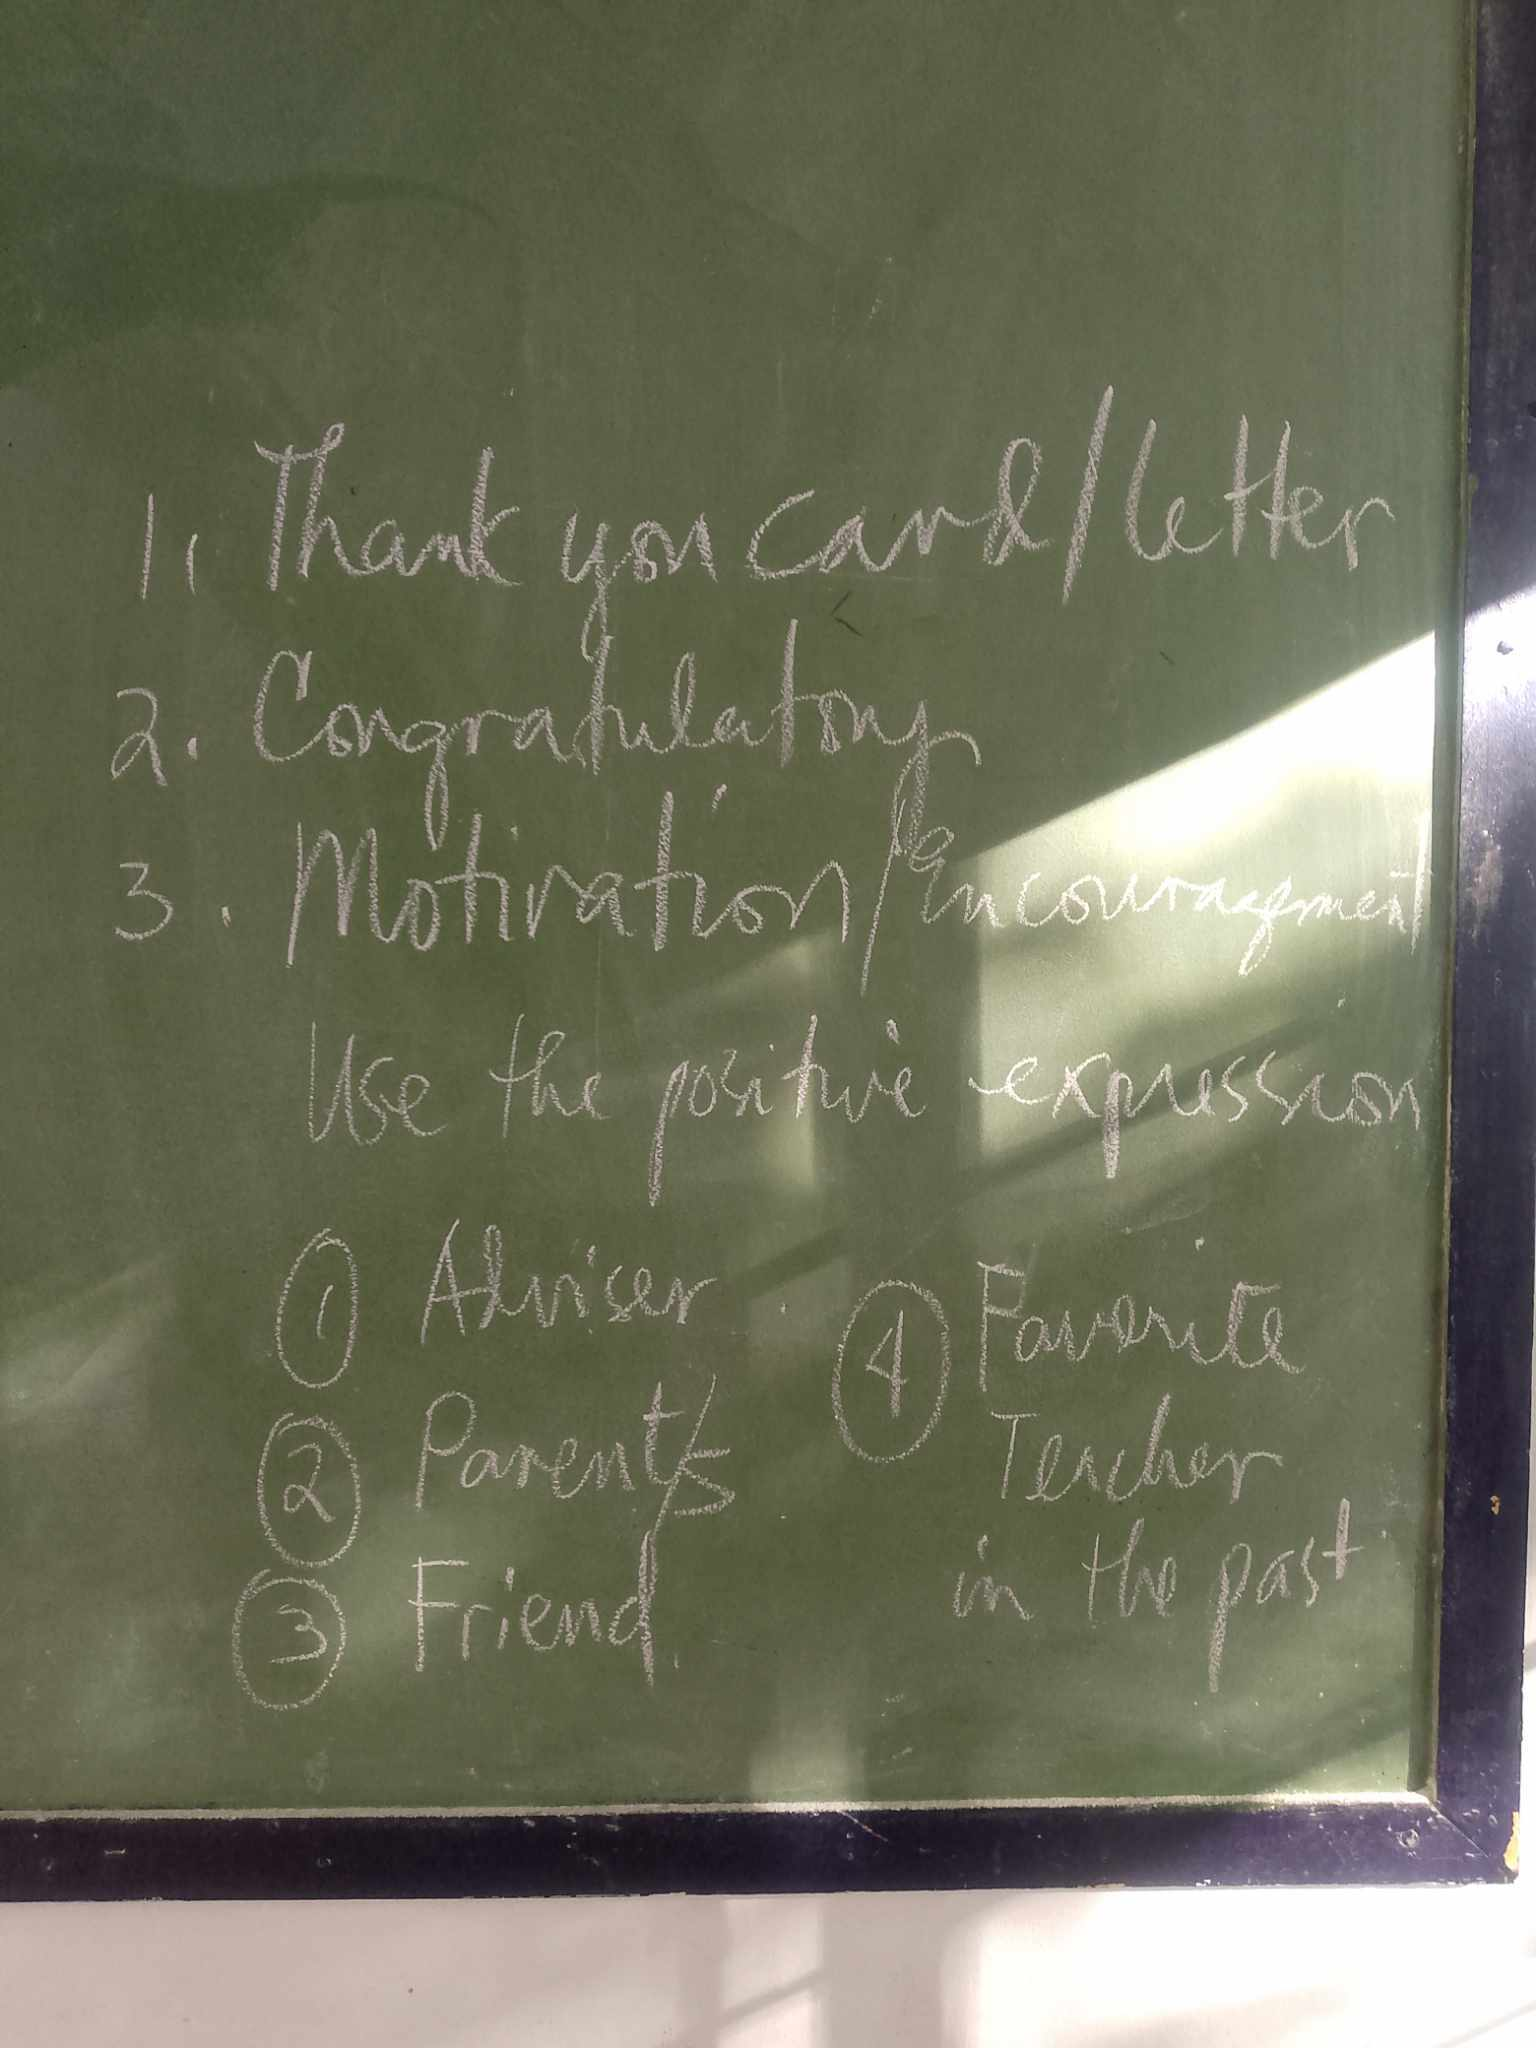 1. Thank you card/letter
2. Congratulatory
3. Motivation/Encouragement
Use the positive expression
① Adviser
② Parent/s
③ Friend
④ Favorite
Teacher
in the past